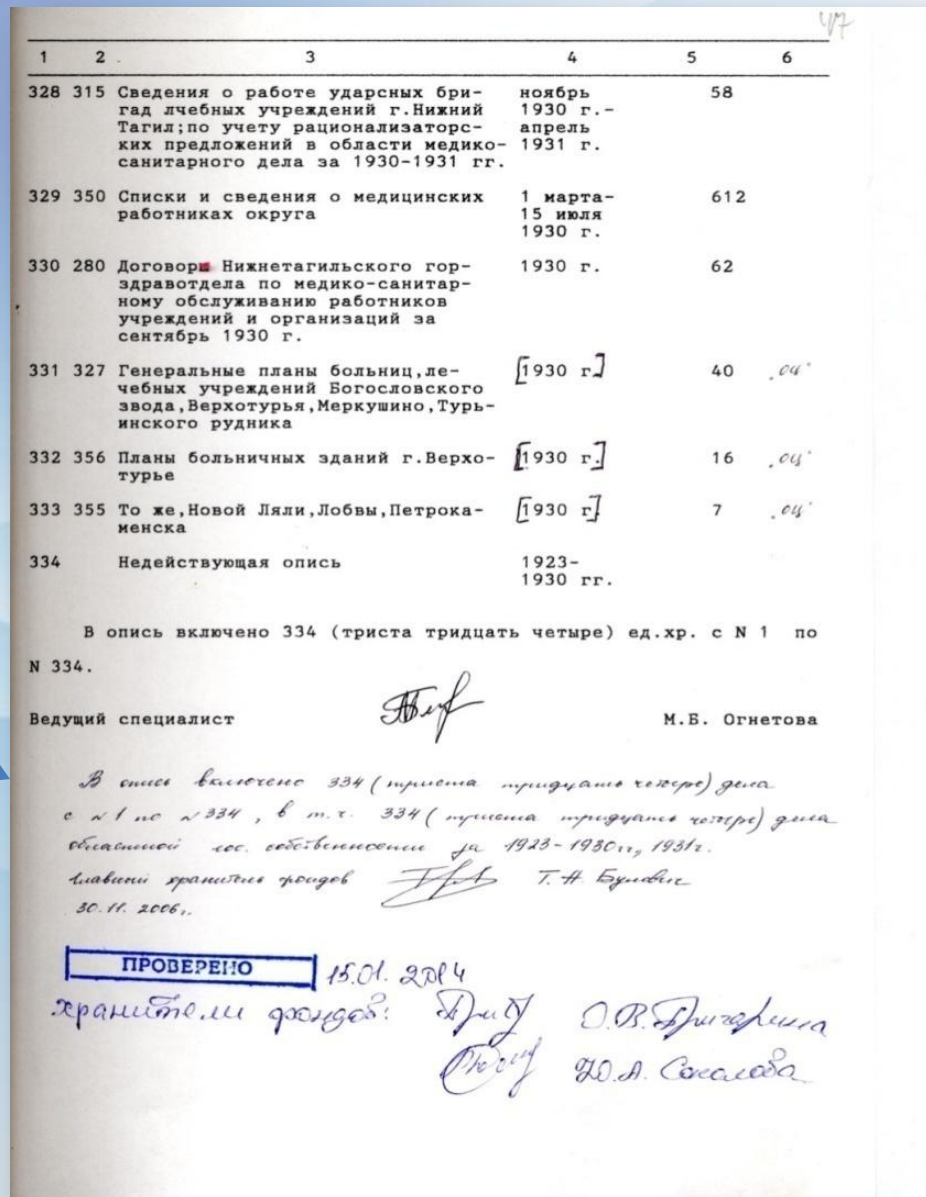 47
1 2 3 4 5 6
328 315 Сведения о работе ударсных бри- ноябрь 58
гад лчебных учреждений г.Нижний 1930 г.-
Тагил;по учету рационализаторс- апрель
ких предложений в области медико- 1931 г.
санитарного дела за 1930-1931 гг.
329 350 Списки и сведения о медицинских 1 марта- 612
работниках округа 15 июля
1930 г.
330 280 Договоры Нижнетагильского гор- 1930 г. 62
здравотдела по медико-санитар-
ному обслуживанию работников
учреждений и организаций за
сентябрь 1930 г.
331 327 Генеральные планы больниц,ле- [1930 г.] 40 "оц"
чебных учреждений Богословского
звода,Верхотурья,Меркушино,Турь-
инского рудника
332 356 Планы больничных зданий г.Верхо- [1930 г.] 16 "оц"
турье
333 355 То же,Новой Ляли,Лобвы,Петрока- [1930 г] 7 "оц"
менска
334 Недействующая опись 1923-
1930 гг.
В опись включено 334 (триста тридцать четыре) ед.хр. с N 1 по
N 334.
Ведущий специалист М.Б. Огнетова
В опись включено 334 (триста тридцать четыре) дела
с №1 по №334, в т.ч. 334 (триста тридцать четыре) дела
областной гос. собственности за 1923-1930гг, 1931г.
Главный хранитель фондов Т.Н. Булавин
30.11.2006г.
ПРОВЕРЕНО 15.01.2014
хранители фондов: О.В.
Ю.А. Соколова